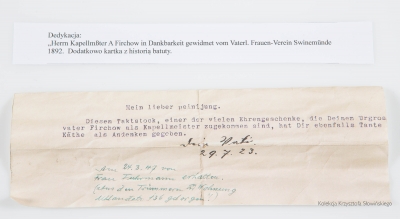 Dedykacja:
„Herrn Kapellmßter A Firchow in Dankbarkeit gewidmet vom Vaterl. Frauen-Verein Swinemünde
1892. Dodatkowo kartka z historią batuty.
Mein lieber
Diesen Taktstock, einer der vielen Ehrengeschenke, die Deinem Urgross
vater Firchow als Kapellmeister zugekommen sind, hat Dir ebenfalls Tante
Käthe als Andenken gegeben.
Dein Vati.
29.7.23.
24.3.47 von
Frau
den Trümmern
Kolekcja Krzysztofa Słowińskiego